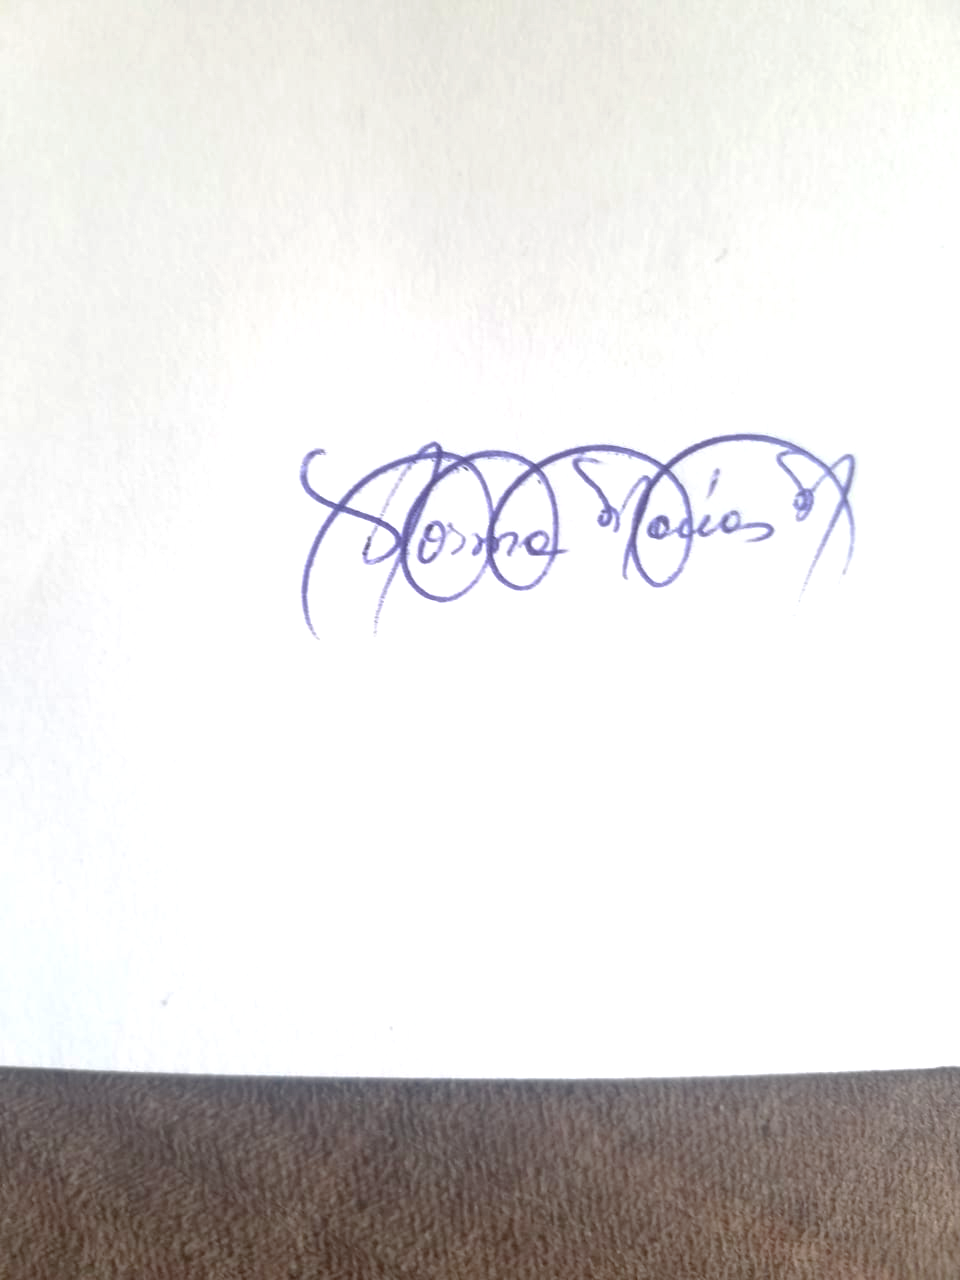 Norma Macías M